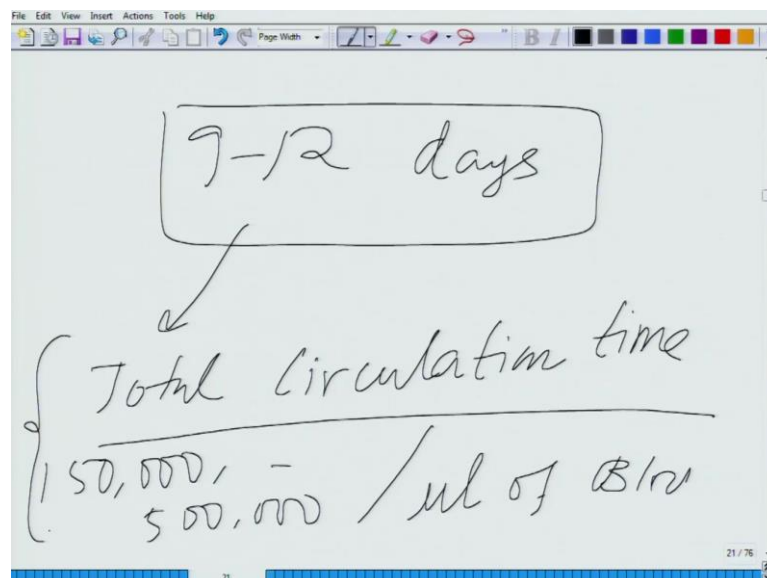 File Edit View Insert Actions Tools Help
Page Width
B I
9-12 days
Total Circulation time
150,000, -
500,000 / ul of
21 / 76
21